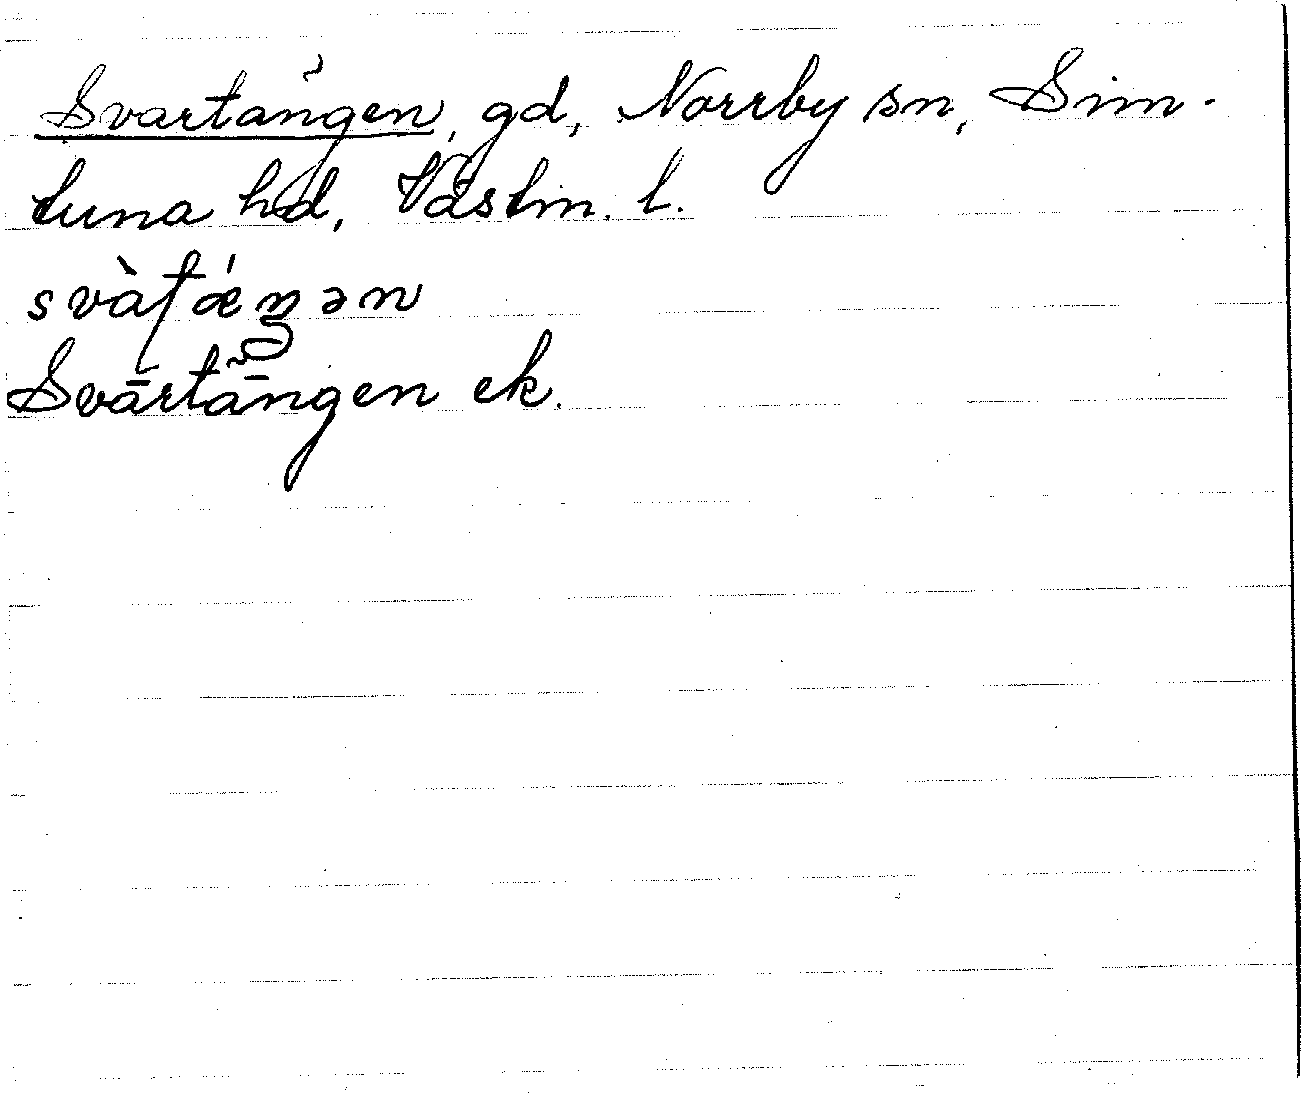 Svartängen, gd, Norrby sn, Sim-
tuna hd, Västm. l.
svàʈǽŋən
Svartängen ek.